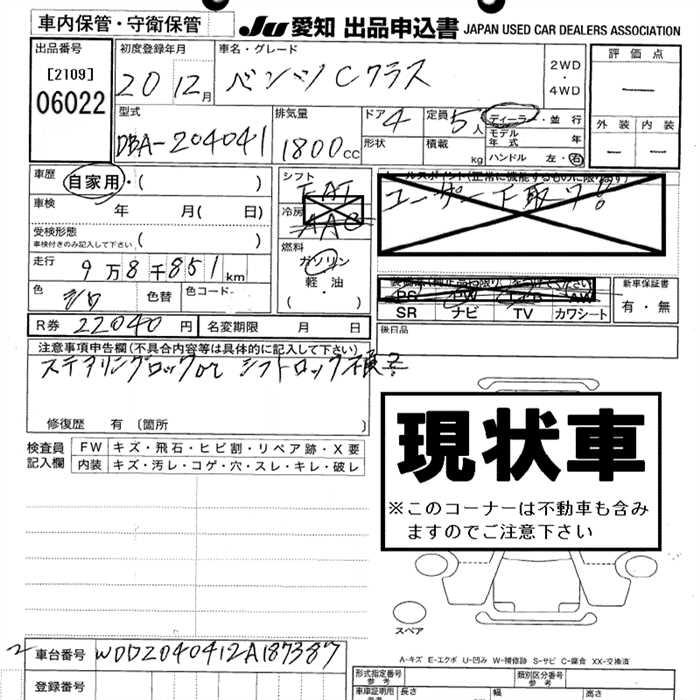 車内保管・守衛保管
JU 愛知 出品申込書 JAPAN USED CAR DEALERS ASSOCIATION
出品番号
[2109]
06022
初度登録年月
20 12月
車名・グレード
ベンツCクラス
2WD
・
4WD
評価点
—
外装 内装
— —
型式
DBA-204041
排気量
1800cc
ドア 4
形状
定員 5人
積載 kg
ディーラー・並行
モデル年式 年
ハンドル 左・右
車歴 自家用・( )
車検 年 月( 日)
受検形態
車検付きのみ記入して下さい ( )
走行 9万8千851km
色 シロ 色替 色コード
R券 22040円 名変期限 月 日
シフト
FAT
冷房
AAC
燃料
ガソリン
軽油
( ・ )
ユーザー下取り!
SR ナビ TV カワシート
新車保証書
有・無
後日品
注意事項申告欄(不具合内容等は具体的に記入して下さい)
ステアリングロックor シフトロック
修復歴 有〔箇所 〕
検査員
記入欄
FW キズ・飛石・ヒビ割・リペア跡・X要
内装 キズ・汚レ・コゲ・穴・スレ・キレ・破レ
現状車
※このコーナーは不動車も含み
ますのでご注意下さい
スペア
A-キズ E-エクボ U-凹み W-補修跡 S-サビ C-腐食 XX-交換済
2
車台番号 WDD2040412A187387
登録番号
形式指定番号
参考
類別区分番号
参考
車車証明用
参考
長さ 幅 高さ